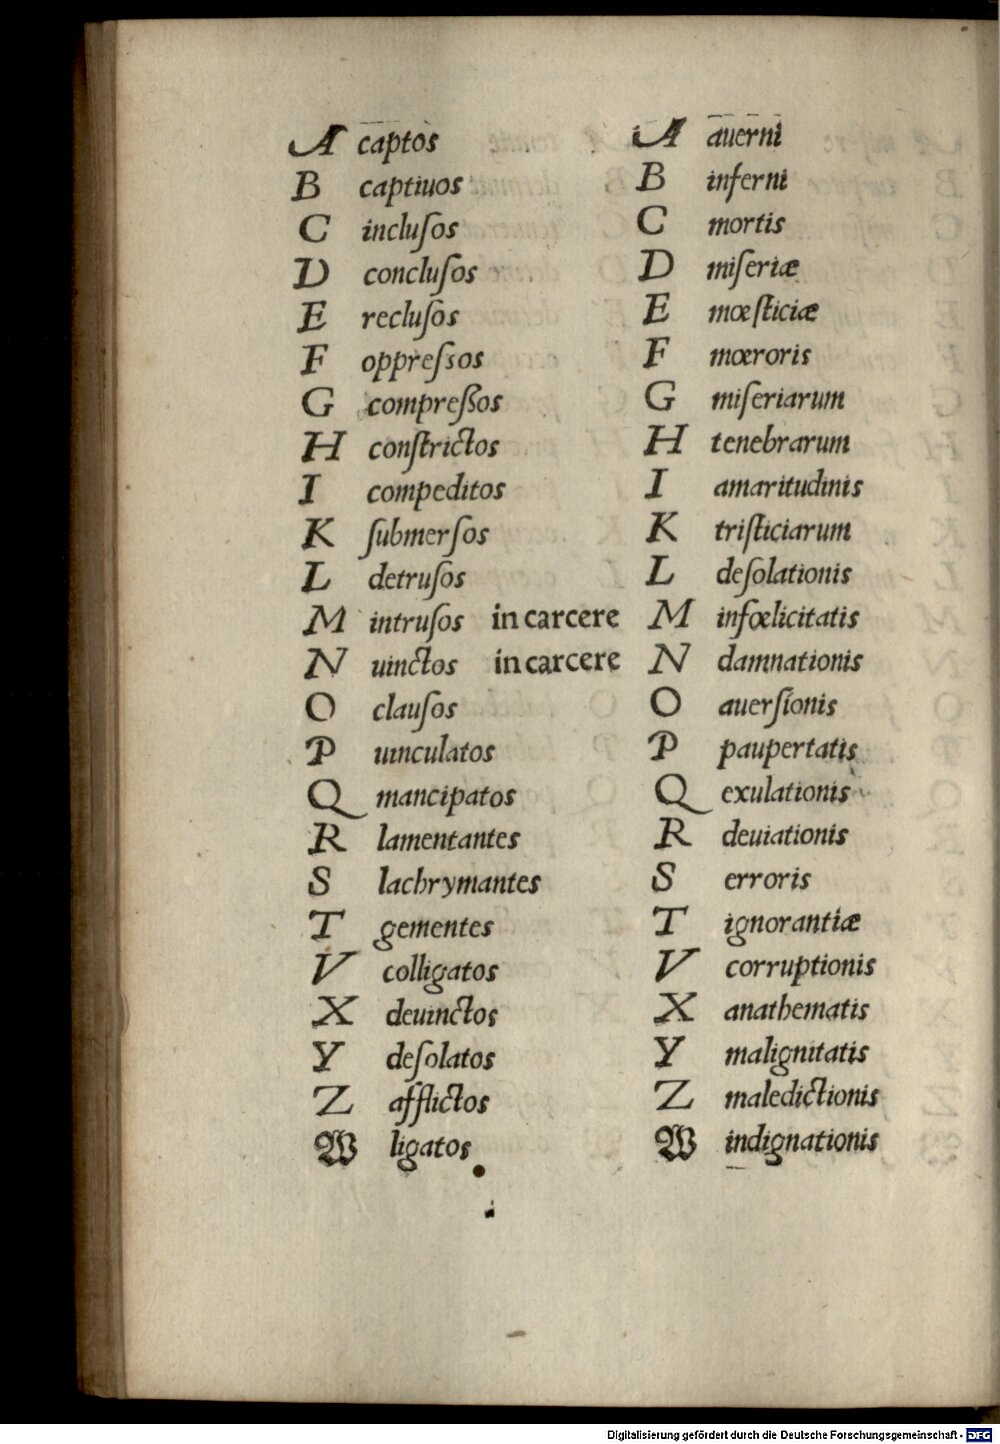 A captos
B captiuos
C incluſos
D concluſos
E recluſos
F oppreſsos
G compreßos
H conſtrictos
I compeditos
K ſubmerſos
L detruſos
M intruſos in carcere
N uinctos in carcere
O clauſos
P uinculatos
Q mancipatos
R lamentantes
S lachrymantes
T gementes
V colligatos
X deuinctos
Y deſolatos
Z afflictos
W ligatos
A auerni
B inferni
C mortis
D miſeriæ
E mœſticiæ
F mœroris
G miſeriarum
H tenebrarum
I amaritudinis
K triſticiarum
L deſolationis
M infœlicitatis
N damnationis
O auerſionis
P paupertatis
Q exulationis
R deuiationis
S erroris
T ignorantiæ
V corruptionis
X anathematis
Y malignitatis
Z maledictionis
W indignationis
Digitalisierung gefördert durch die Deutsche Forschungsgemeinschaft - DFG